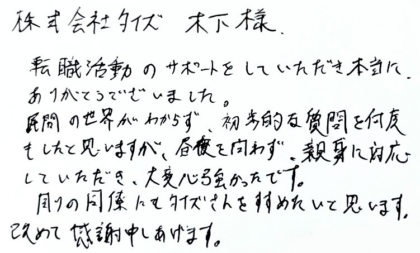 株式会社タイズ 木下様.
転職活動のサポートをしていただき本当に、
ありがとうございました。
民間の世界がわからず、初歩的な質問を何度
もしたと思いますが、昼夜を問わず、親身に対応
していただき、大変心強かったです。
周りの同僚にもタイズさんをすすめたいと思います。
改めて感謝申しあげます。